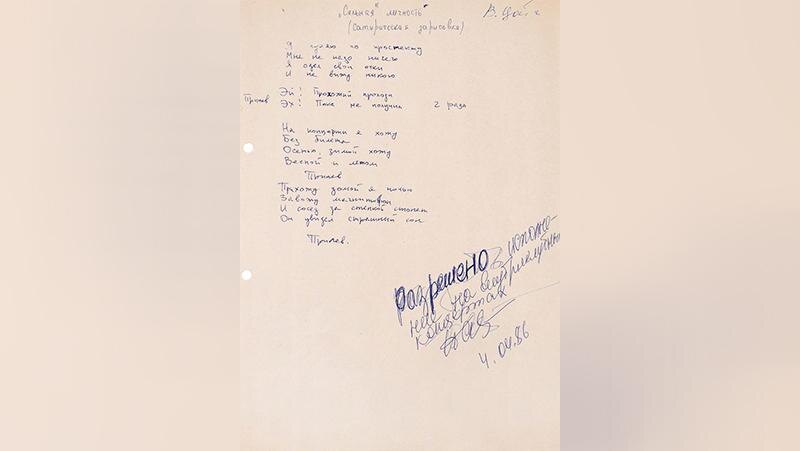 „Сильная" личность"
(Сатирическая зарисовка)
В. Цой
Я гуляю по проспекту
Мне не надо ничего
Я одел свои очки
И не вижу никого
Припев Эй! Прохожий проходи
Эх! Пока не получил 2 раза
На концерты я хожу
Без билета
Осенью, зимой хожу
Весной и летом
Припев
Прихожу домой я ночью
Завожу магнитофон
И сосед за стенкой стонет
Он увидел страшный сон
Припев.
разрешено к исполне-
нию на
концертах
4.04.86